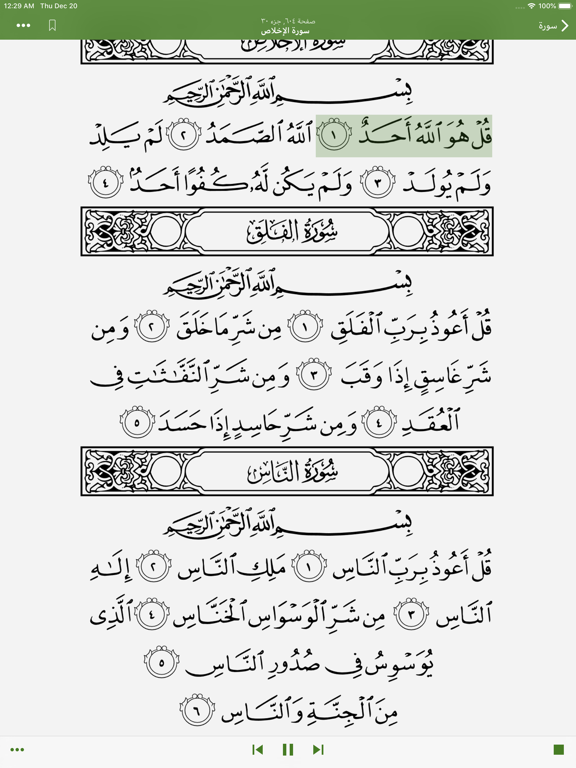 12:29 AM Thu Dec 20
100%
صفحة ٦٠٤, جزء ٣٠
سورة الإخلاص
سورة
سُورَةُ الإِخْلَاصِ
بِسْمِ ٱللَّهِ ٱلرَّحْمَٰنِ ٱلرَّحِيمِ
قُلْ هُوَ ٱللَّهُ أَحَدٌ ١ ٱللَّهُ ٱلصَّمَدُ ٢ لَمْ يَلِدْ
وَلَمْ يُولَدْ ٣ وَلَمْ يَكُن لَّهُۥ كُفُوًا أَحَدٌۢ ٤
سُورَةُ الفَلَقِ
بِسْمِ ٱللَّهِ ٱلرَّحْمَٰنِ ٱلرَّحِيمِ
قُلْ أَعُوذُ بِرَبِّ ٱلْفَلَقِ ١ مِن شَرِّ مَا خَلَقَ ٢ وَمِن
شَرِّ غَاسِقٍ إِذَا وَقَبَ ٣ وَمِن شَرِّ ٱلنَّفَّٰثَٰتِ فِى
ٱلْعُقَدِ ٤ وَمِن شَرِّ حَاسِدٍ إِذَا حَسَدَ ٥
سُورَةُ النَّاسِ
بِسْمِ ٱللَّهِ ٱلرَّحْمَٰنِ ٱلرَّحِيمِ
قُلْ أَعُوذُ بِرَبِّ ٱلنَّاسِ ١ مَلِكِ ٱلنَّاسِ ٢ إِلَٰهِ
ٱلنَّاسِ ٣ مِن شَرِّ ٱلْوَسْوَاسِ ٱلْخَنَّاسِ ٤ ٱلَّذِى
يُوَسْوِسُ فِى صُدُورِ ٱلنَّاسِ ٥
مِنَ ٱلْجِنَّةِ وَٱلنَّاسِ ٦